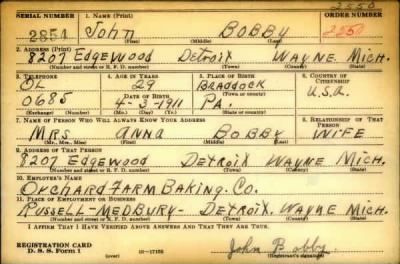 2550
SERIAL NUMBER 1. NAME (Print) ORDER NUMBER
2854 John BOBBY 2550
(First) (Middle) (Last)
2. ADDRESS (Print)
8207 EdgeWood Detroit WAYNE MICH.
(Number and street or R. F. D. number) (Town) (County) (State)
3. TELEPHONE 4. AGE IN YEARS 5. PLACE OF BIRTH 6. COUNTRY OF CITIZENSHIP
OL 29 Braddock
(Town or county)
DATE OF BIRTH U.S.A.
0685 4-3-1911 PA.
(Exchange) (Number) (Mo.) (Day) (Yr.) (State or country)
7. NAME OF PERSON WHO WILL ALWAYS KNOW YOUR ADDRESS 8. RELATIONSHIP OF THAT PERSON
MRS ANNA BOBBY WIFE
(Mr., Mrs., Miss) (First) (Middle) (Last)
9. ADDRESS OF THAT PERSON
8207 Edgewood DETROIT WAYNE MICH.
(Number and street or R. F. D. number) (Town) (County) (State)
10. EMPLOYER'S NAME
ORCHARD FARM BAKING. CO.
11. PLACE OF EMPLOYMENT OR BUSINESS
RUSSELL-MEDBURY- DETROIT. WAYNE MICH.
(Number and street or R. F. D. number) (Town) (County) (State)
I AFFIRM THAT I HAVE VERIFIED ABOVE ANSWERS AND THAT THEY ARE TRUE.
REGISTRATION CARD
D. S. S. Form 1 (over) John Bobby
(Registrant's signature)